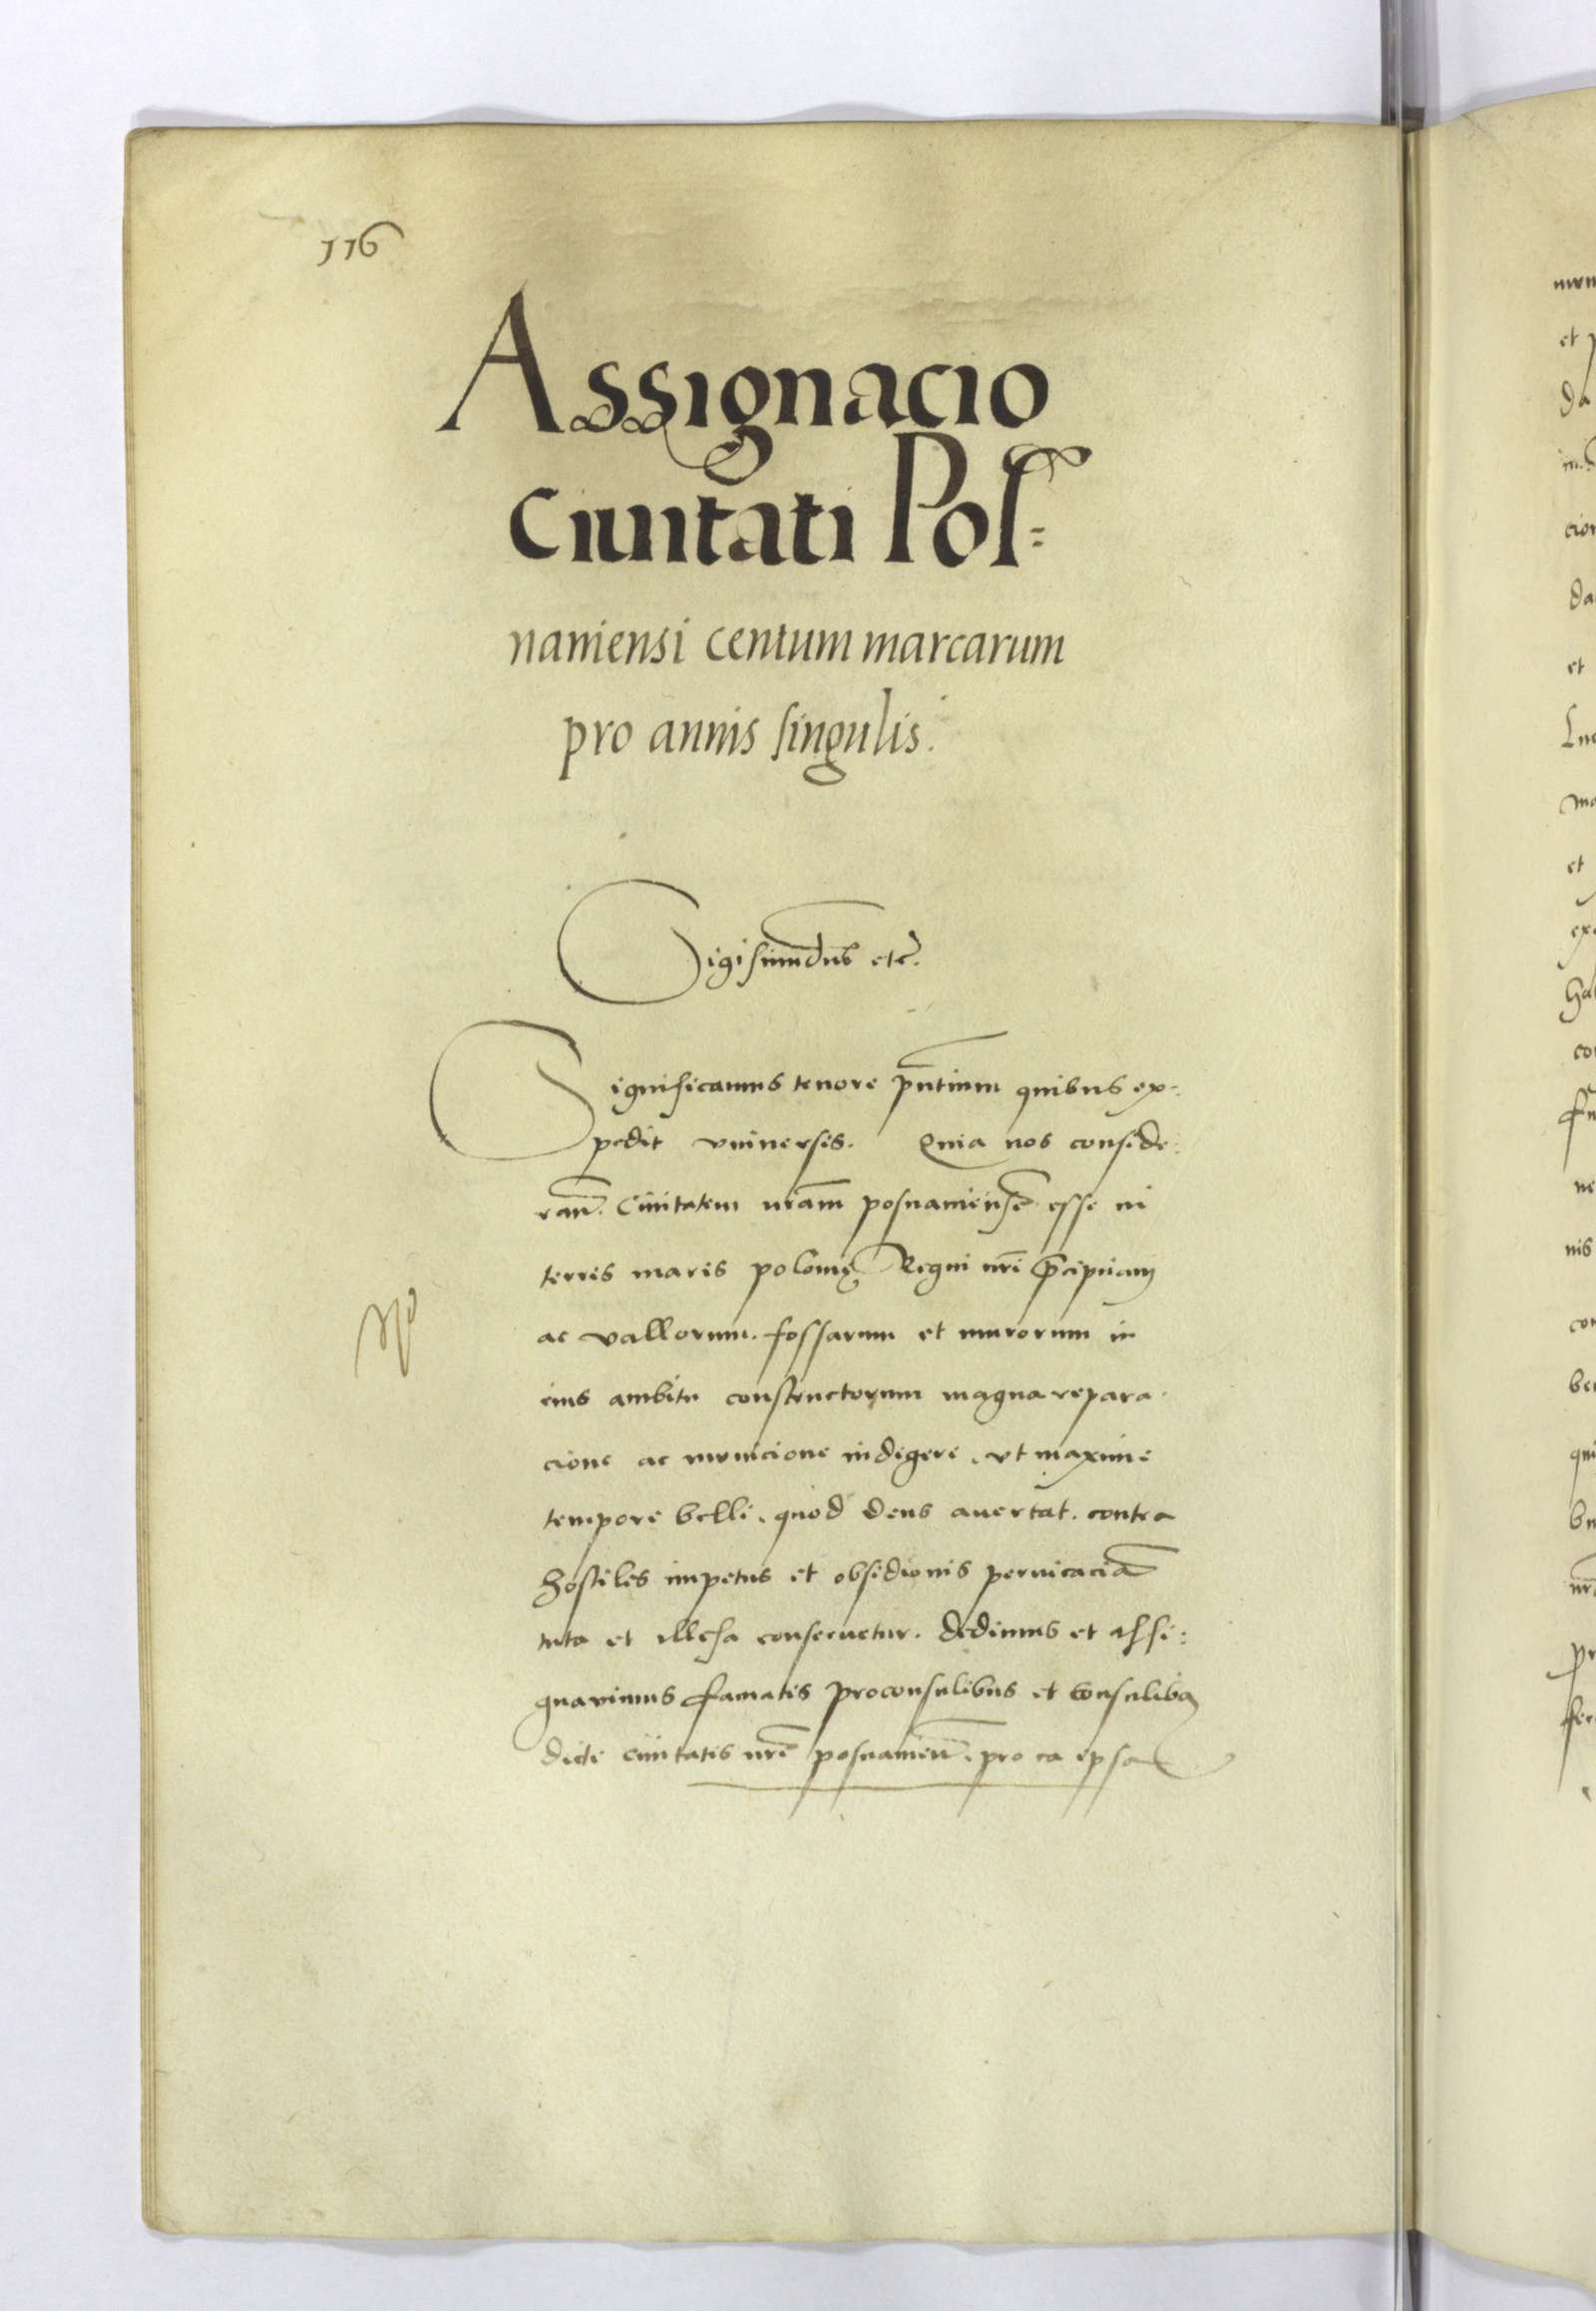 116
Assignacio
Ciuitati Pos=
naniensi centum marcarum
pro annis singulis.
Sigismundus etc.
Significamus tenore pñtium quibus ex=
pedit vniuersis. Quia nos conside
rañ. Ciuitatem nr̃am posnaniensẽ esse in
terris maris polonię Regni nr̃i p̃cipuam
ac vallorum. fossarum et murorum in
eius ambitu constructorum magna repara
cione ac municione indigere, vt maxime
tempore belli, quod deus auertat. contra
hostiles impetus et obsidionis peruicaciã
tuta et illesa conseruetur. Dedimus et assi=
gnauimus famatis proconsulibus et consulibꝫ
dicte ciuitatis nr̃e posnanieñ. pro ea ipsa